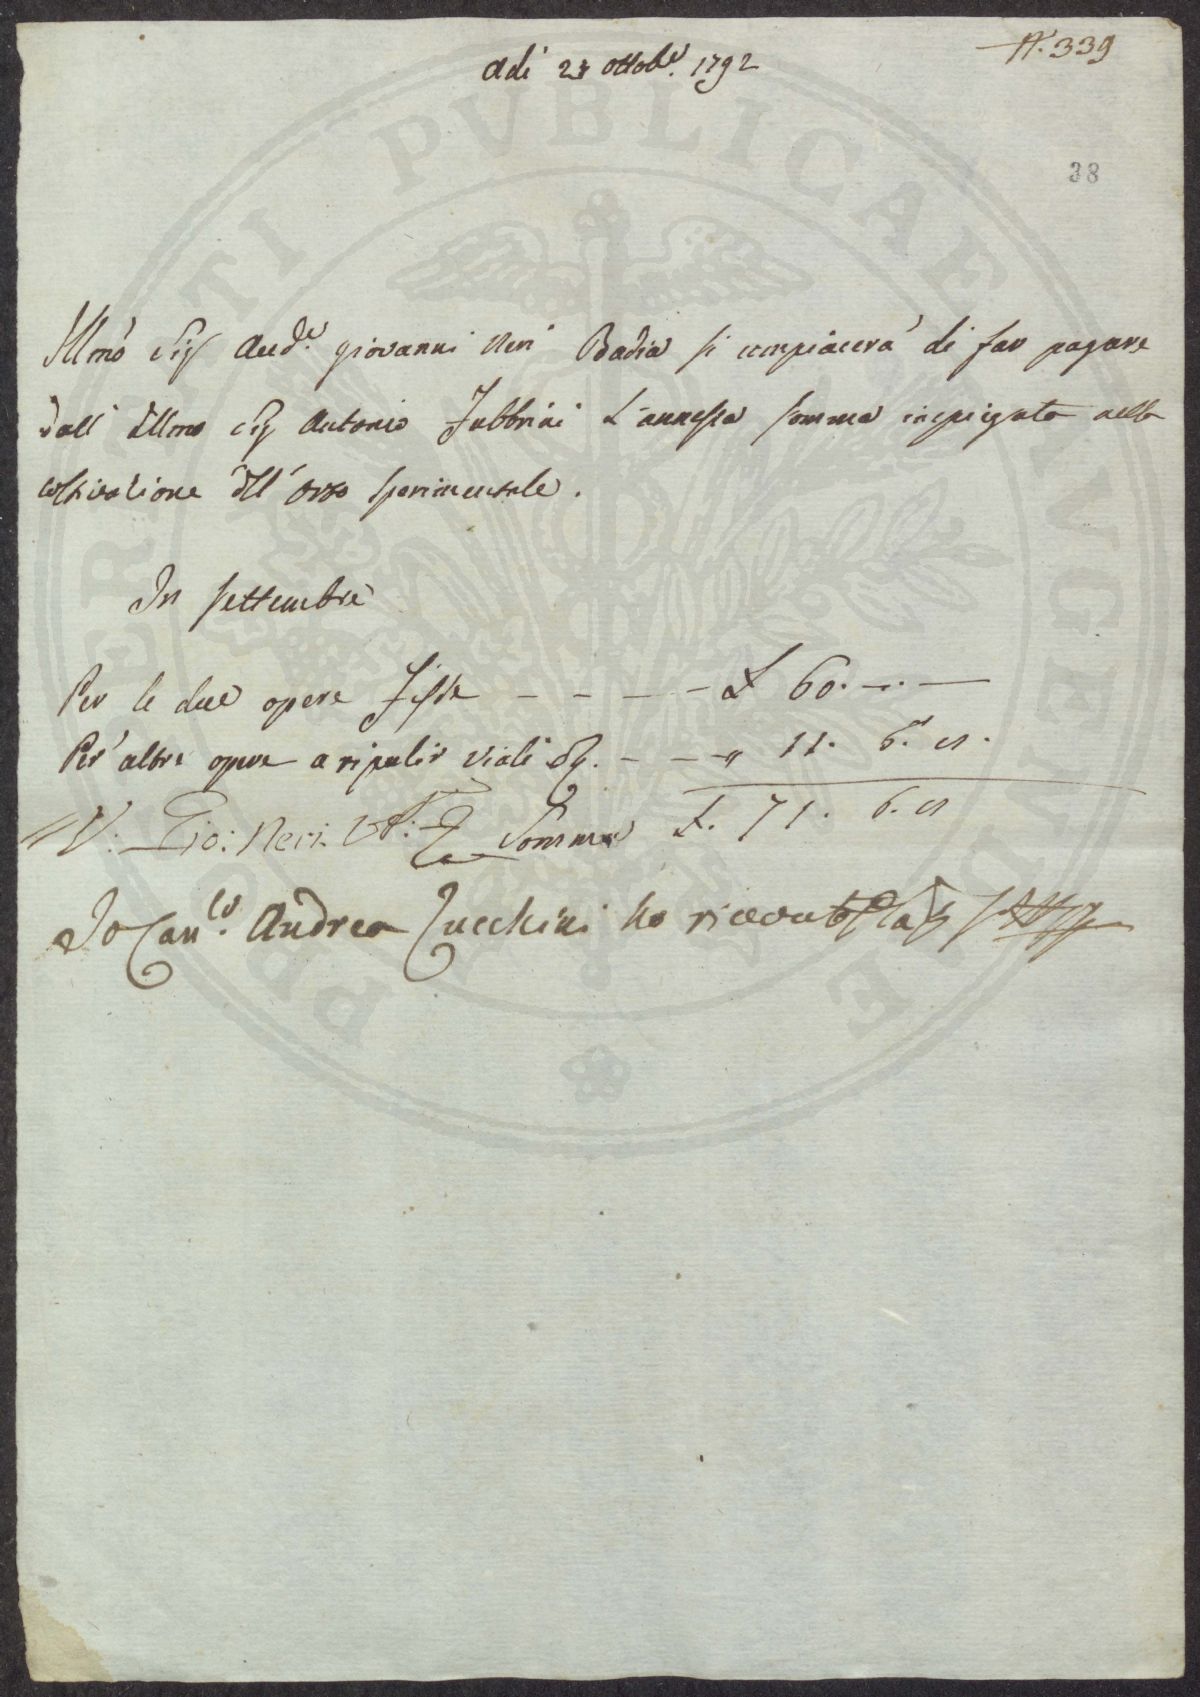 N. 339
Adi 27 ottobe. 1792
38
Illmo Sig Aude. giovanni Neri Badia si compiacerà di far pagare
dall' Illmo Sig Antonio Fabbrini L'annessa somma inpiegata nella
coltivazione dell' Orto sperimentale.
In settembre
Per le due opere fisse - - - - - £ 60. -. -
Per altre opere a ripulir viali - - - " 11. 6. 8.
V: Gio: Neri Somma £. 71. 6. 8
Io Canco. Andrea Zucchini ho ricevuto
PROSPERITATI PUBLICAE AUGENDAE